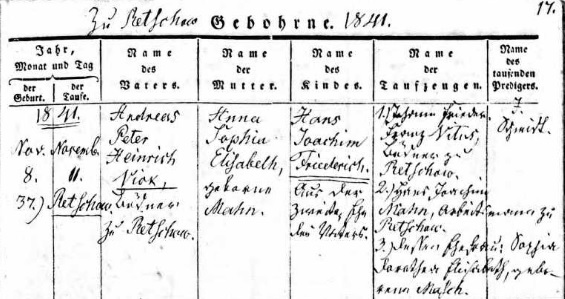 Zu Retschow Gebohrne. 1841.
17.
Jahr,
Monat und Tag
der Geburt.
der Taufe.
Name
des
Vaters.
Name
der
Mutter.
Name
des
Kindes.
Name
der
Taufzeugen.
Name
des
taufenden
Predigers.
1841.
Nov. Novemb.
8. 11.
37.) Retschow.
Andreas
Peter
Heinrich
Vick,
Büdner
zu Retschow.
Anna
Sophia
Elisabeth,
geborne
Mahn.
Hans
Joachim
Friederich.
Aus der
zweiten Ehe
des Vaters.
1.) Johann Frieder.
Franz Vitus,
Büdner zu
Retschow.
2.) Hans Joachim
Mahn, Arbeitsmann zu
Retschow.
3.) Dessen Ehefrau: Sophia
Dorothea Elisabeth, gebo-
rene Masch.